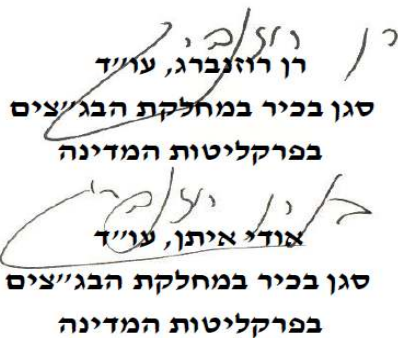 רן רוזנברג
רן רוזנברג, עו״ד
סגן בכיר במחלקת הבג״צים
בפרקליטות המדינה
אודי איתן, עו״ד
סגן בכיר במחלקת הבג״צים
בפרקליטות המדינה